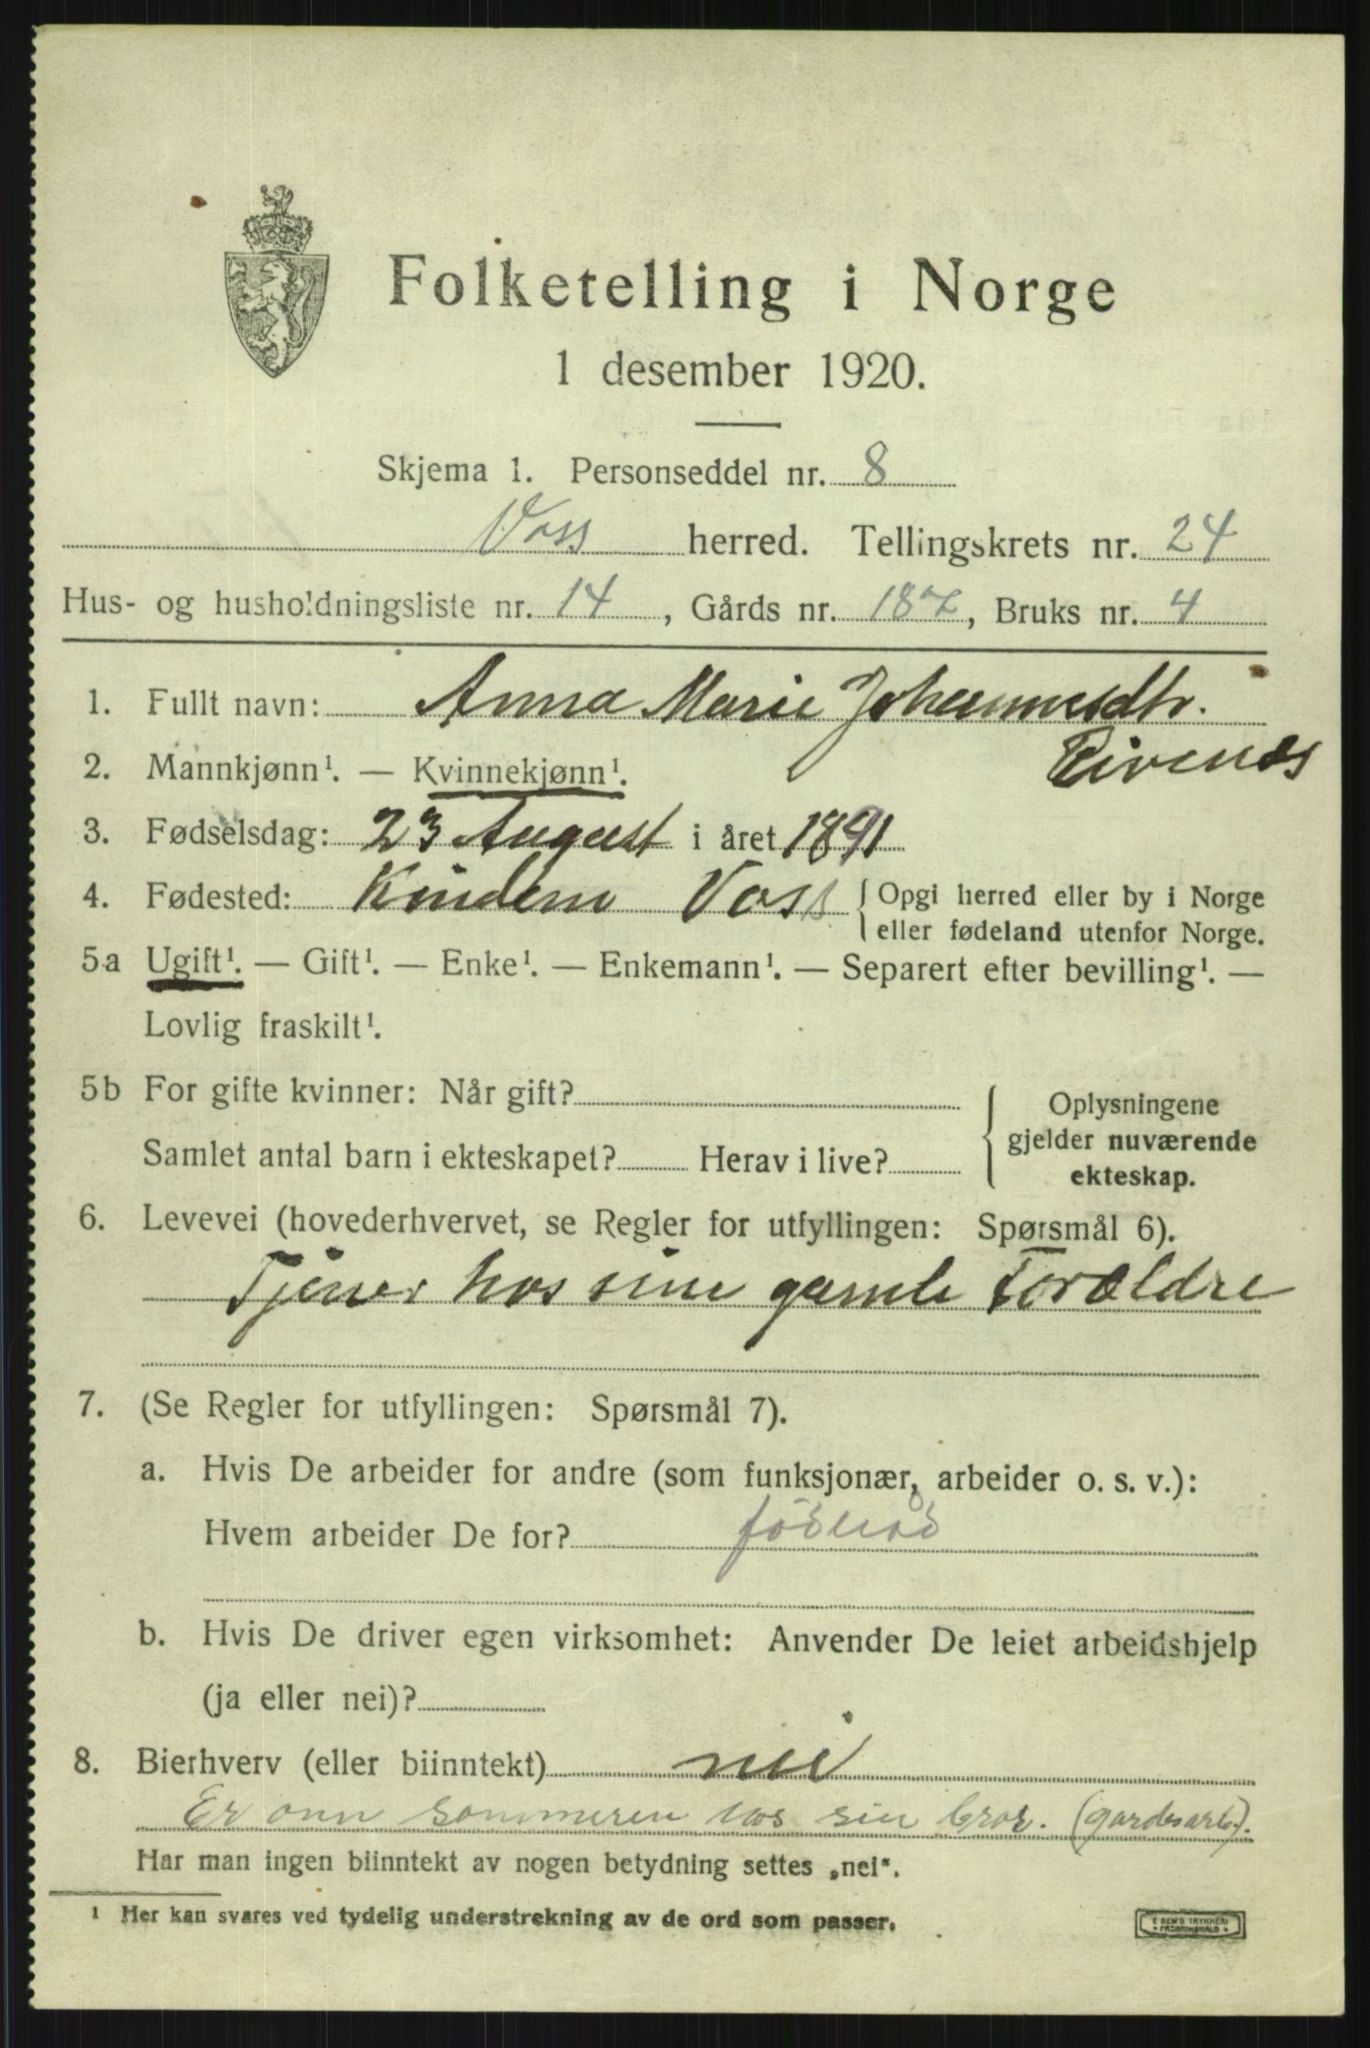 Folketelling i Norge
1 desember 1920.
Skjema 1. Personseddel nr. 8
Voss herred. Tellingskrets nr. 24
Hus- og husholdningsliste nr. 14, Gårds nr. 187, Bruks nr. 4
1. Fullt navn: Anna Marie Johannesdtr.
Eivenæs
2. Mannkjønn¹. — Kvinnekjønn¹.
3. Fødselsdag: 23 August i året 1891
4. Fødested: Kindem Voss {Opgi herred eller by i Norge
eller fødeland utenfor Norge.
5a Ugift¹. — Gift¹. — Enke¹. — Enkemann¹. — Separert efter bevilling¹. —
Lovlig fraskilt¹.
5b For gifte kvinner: Når gift?
Samlet antal barn i ekteskapet? Herav i live?
Oplysningene
gjelder nuværende
ekteskap.
6. Levevei (hovederhvervet, se Regler for utfyllingen: Spørsmål 6).
Tjener hos sine gamle Forældre
7. (Se Regler for utfyllingen: Spørsmål 7).
a. Hvis De arbeider for andre (som funksjonær, arbeider o. s. v.):
Hvem arbeider De for?
b. Hvis De driver egen virksomhet: Anvender De leiet arbeidshjelp
(ja eller nei)?
8. Bierhverv (eller biinntekt) nei
Er om sommeren hos sin bror. (gardsarb.).
Har man ingen biinntekt av nogen betydning settes „nei".
¹ Her kan svares ved tydelig understrekning av de ord som passer.
E SEM'S TRYKKERI
FREDRIKSHALD